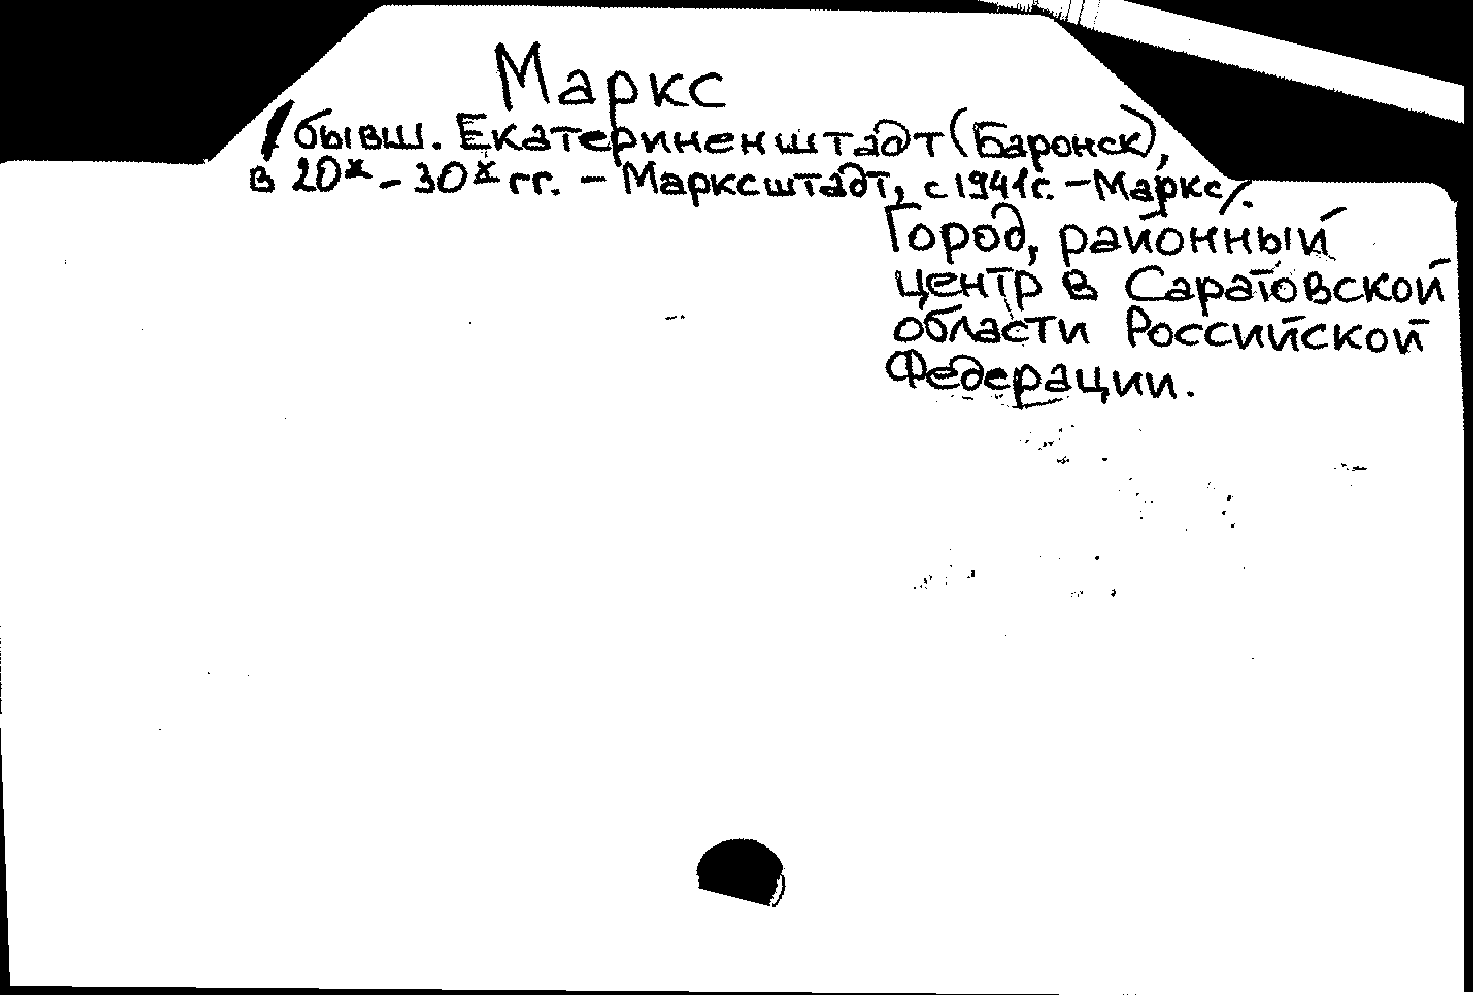 Маркс
/бывш. Екатериненштадт (Баронск),
в 20х – 30х гг. – Марксштадт, с 1941г. – Маркс/.
Город, районный
центр в Саратовской
области Российской
Федерации.